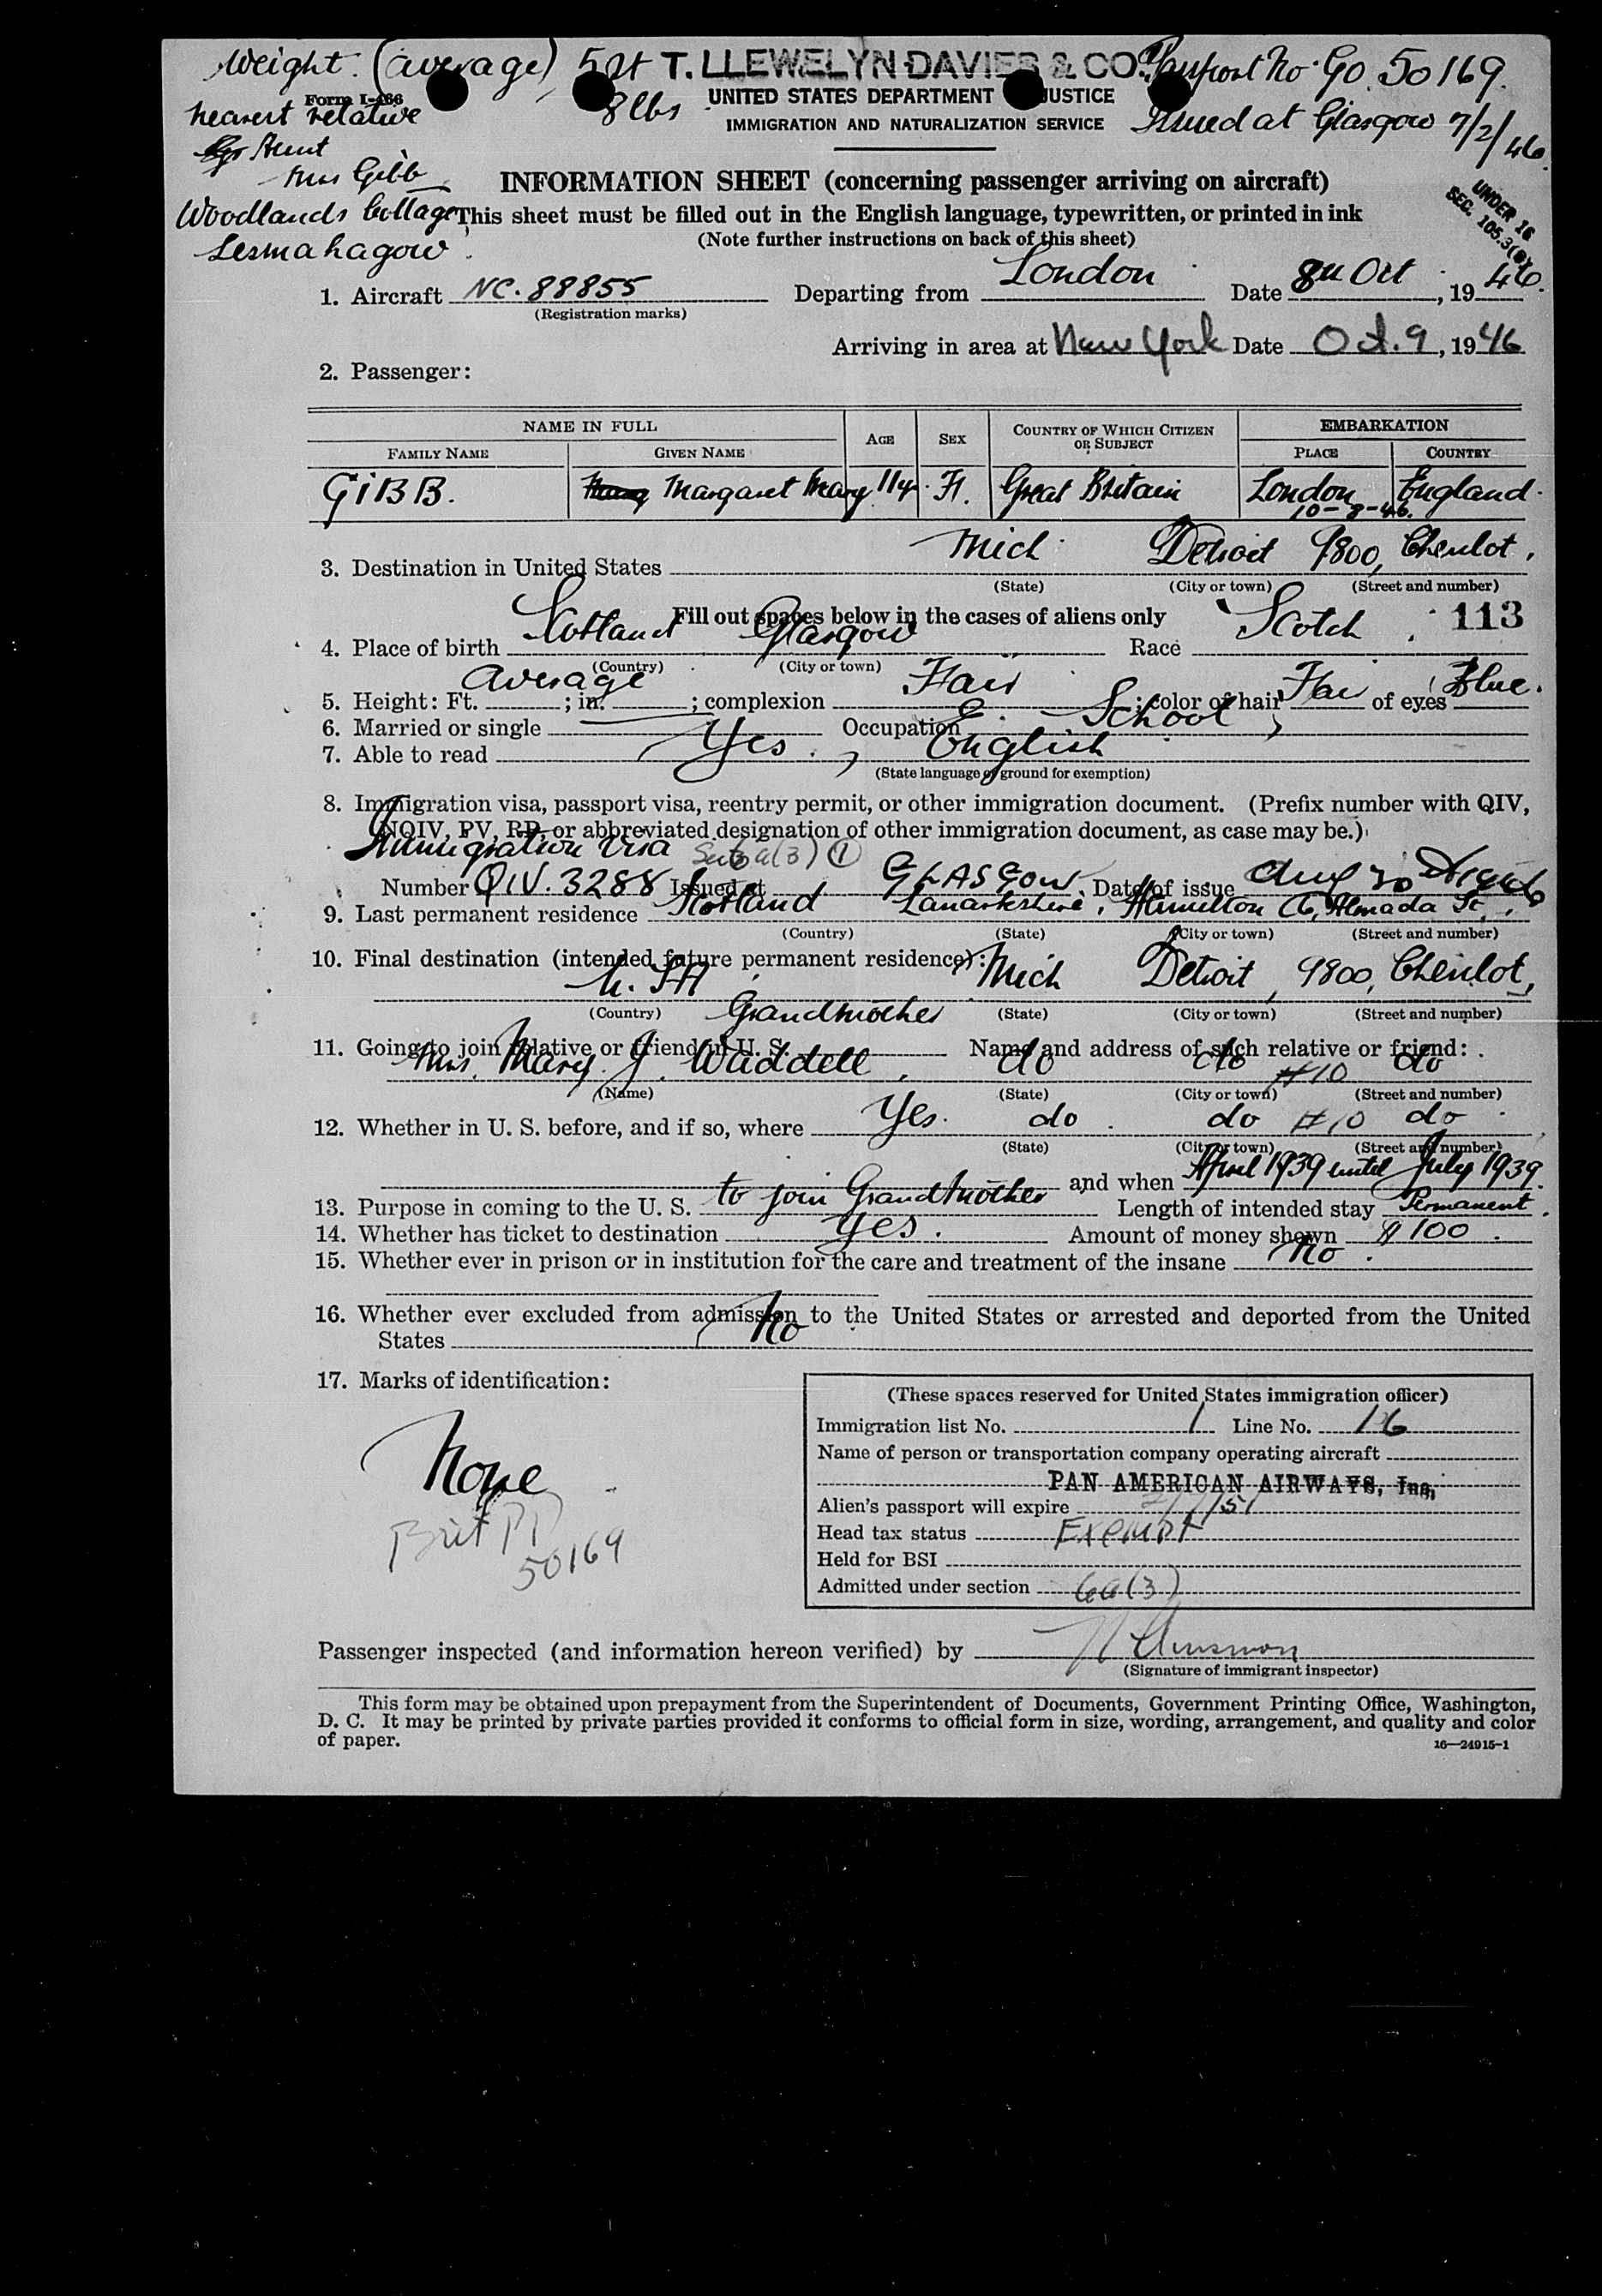 Weight. (average) 5 st T. LLEWELYN DAVIES & CO. Passport No. Go. 50169.
8 lbs
Form I-466
UNITED STATES DEPARTMENT JUSTICE
IMMIGRATION AND NATURALIZATION SERVICE
Issued at Glasgow 7/2/46.
nearest relative
Aunt
Mrs Gibb
Woodlands Cottage
Lesmahagow.
INFORMATION SHEET (concerning passenger arriving on aircraft)
This sheet must be filled out in the English language, typewritten, or printed in ink
(Note further instructions on back of this sheet)
UNDER 16
SEC. 105.3(
1. Aircraft NC. 88855 Departing from London Date 8th Oct, 1946.
(Registration marks)
Arriving in area at New York Date Oct. 9, 1946
2. Passenger:
NAME IN FULL AGE SEX COUNTRY OF WHICH CITIZEN OR SUBJECT EMBARKATION
FAMILY NAME GIVEN NAME PLACE COUNTRY
GIBB. Margaret Mary 11y. F. Great Britain London England.
10-8-46.
3. Destination in United States Mich Detroit 9800,
(State) (City or town) (Street and number)
Fill out spaces below in the cases of aliens only
113
4. Place of birth Scotland Glasgow Race Scotch
(Country) (City or town)
5. Height: Ft. average; in. ; complexion Fair; color of hair Fair of eyes Blue.
6. Married or single Occupation School
7. Able to read Yes, English
(State language or ground for exemption)
8. Immigration visa, passport visa, reentry permit, or other immigration document. (Prefix number with QIV,
NQIV, PV, RP, or abbreviated designation of other immigration document, as case may be.)
Immigration Visa Sec 6a(3) 1
Number QIV. 3288 Issued at GLASGOW. Date of issue Aug 30 1946
9. Last permanent residence Scotland Lanarkshire, Hamilton Almada St.
(Country) (State) (City or town) (Street and number)
10. Final destination (intended future permanent residence):
U. S A Mich Detroit, 9800,
(Country) (State) (City or town) (Street and number)
11. Going to join relative or friend in U. S. Grandmother Name and address of such relative or friend:
Mrs. Mary J. Waddell, do do #10 do
(Name) (State) (City or town) (Street and number)
12. Whether in U. S. before, and if so, where Yes. do. do #10 do
(State) (City or town) (Street and number)
and when April 1939 until July 1939.
13. Purpose in coming to the U. S. to join Grandmother Length of intended stay Permanent.
14. Whether has ticket to destination Yes. Amount of money shown $100.
15. Whether ever in prison or in institution for the care and treatment of the insane No.
16. Whether ever excluded from admission to the United States or arrested and deported from the United
States No
17. Marks of identification:
None
Brit PP
50169
(These spaces reserved for United States immigration officer)
Immigration list No. 1 Line No. 16
Name of person or transportation company operating aircraft
PAN AMERICAN AIRWAYS, Inc.
Alien's passport will expire 2/7/51
Head tax status Exempt
Held for BSI
Admitted under section 6a(3)
Passenger inspected (and information hereon verified) by
(Signature of immigrant inspector)
This form may be obtained upon prepayment from the Superintendent of Documents, Government Printing Office, Washington,
D. C. It may be printed by private parties provided it conforms to official form in size, wording, arrangement, and quality and color
of paper.
16—24915-1